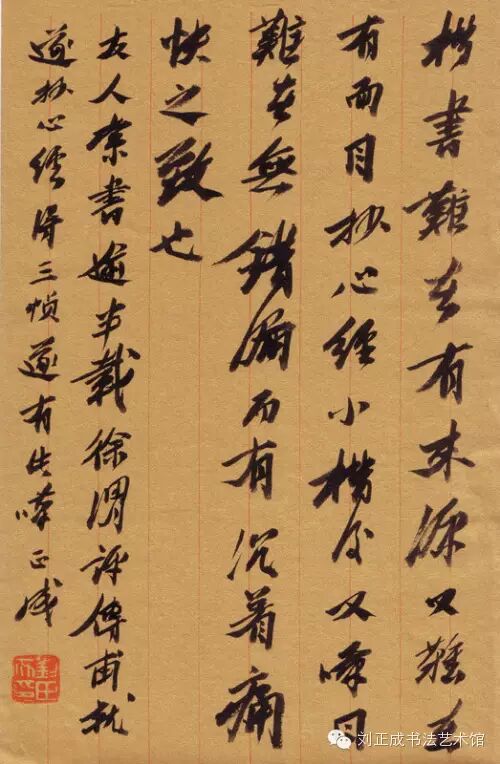 楷書難在有來源又難在
有面目抄心經小楷后又嘆曰
難在無錯漏而有沉着痛
快之致也
友人索書逾半載徐渭評傳甫就
遂抄心經得三幀遂有此嘆正成
刘正成书法艺术馆